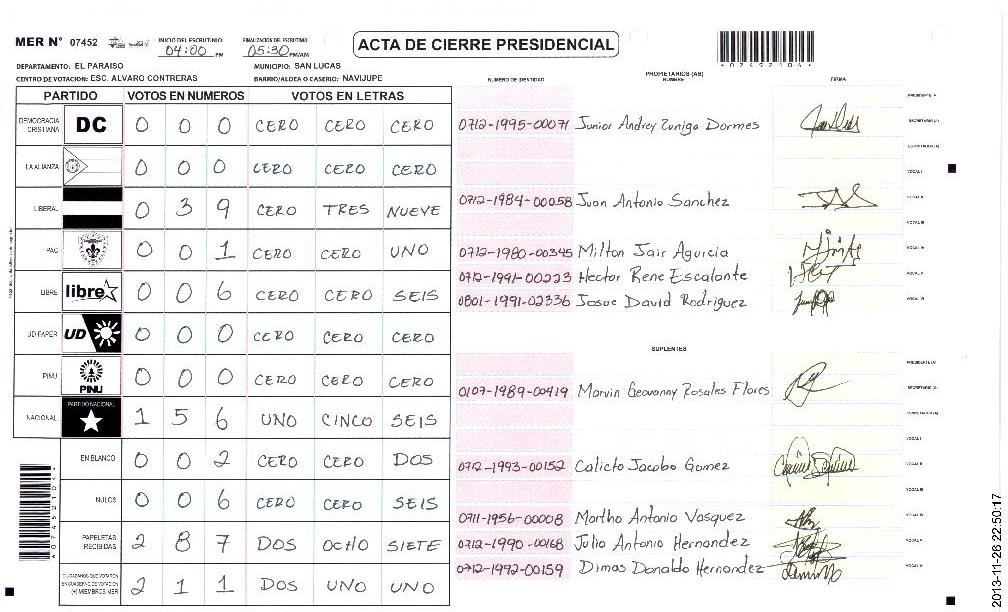 MER N° 07452 INICIO DEL ESCRUTINIO 04:00 PM FINALIZACION DEL ESCRUTINIO 05:30 PM/AM
ACTA DE CIERRE PRESIDENCIAL
DEPARTAMENTO: EL PARAISO MUNICIPIO: SAN LUCAS
CENTRO DE VOTACION: ESC. ALVARO CONTRERAS BARRIO/ALDEA O CASERIO: NAVIJUPE
PARTIDO VOTOS EN NUMEROS VOTOS EN LETRAS
DEMOCRACIA CRISTIANA DC 0 0 0 CERO CERO CERO
LA ALIANZA 0 0 0 CERO CERO CERO
LIBERAL 0 3 9 CERO TRES NUEVE
PAC 0 0 1 CERO CERO UNO
LIBRE libre 0 0 6 CERO CERO SEIS
UD-FAPER UD 0 0 0 CERO CERO CERO
PINU PINU 0 0 0 CERO CERO CERO
NACIONAL PARTIDO NACIONAL 1 5 6 UNO CINCO SEIS
EN BLANCO 0 0 2 CERO CERO DOS
NULOS 0 0 6 CERO CERO SEIS
PAPELETAS RECIBIDAS 2 8 7 DOS OCHO SIETE
CIUDADANOS QUE VOTARON EN CUADERNO DE VOTACION (+) MIEMBROS MER 2 1 1 DOS UNO UNO
NUMERO DE IDENTIDAD PROPIETARIOS (AS) NOMBRE FIRMA
PRESIDENTE (A)
0712-1995-00071 Junior Andrey Zuniga Dormes SECRETARIO (A)
ESCRUTADOR (A)
VOCAL I
0712-1984-00058 Juan Antonio Sanchez VOCAL II
VOCAL III
0712-1980-00345 Milton Jair Aguicia VOCAL IV
0712-1991-00223 Hector Rene Escalante VOCAL V
0801-1991-02336 Josue David Rodriguez VOCAL VI
SUPLENTES
PRESIDENTE (A)
0107-1989-00419 Marvin Geovanny Rosales Flores SECRETARIO (A)
ESCRUTADOR (A)
VOCAL I
0712-1993-00152 Calicto Jacobo Gomez VOCAL II
VOCAL III
0711-1956-00008 Martho Antonio Vasquez VOCAL IV
0712-1990-00168 Julio Antonio Hernandez VOCAL V
0712-1992-00159 Dimas Donaldo Hernandez VOCAL VI
2013-11-26 22:50:17